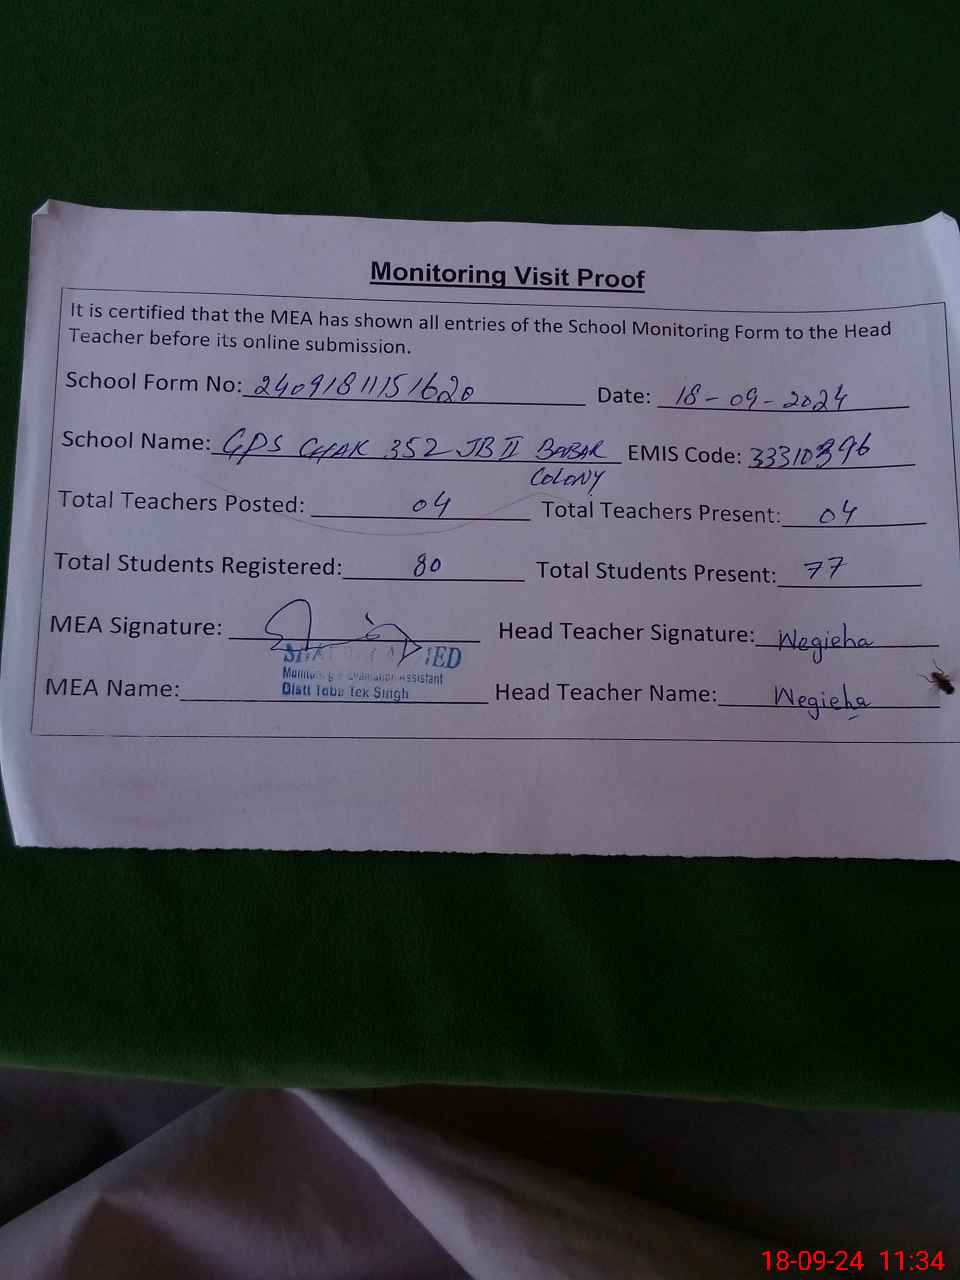 Monitoring Visit Proof
It is certified that the MEA has shown all entries of the School Monitoring Form to the Head
Teacher before its online submission.
School Form No: 24091811151620 Date: 18-09-2024
School Name: GPS CHAK 352 JB II BABAR EMIS Code: 33310396
COLONY
Total Teachers Posted: 04 Total Teachers Present: 04
Total Students Registered: 80 Total Students Present: 77
MEA Signature: Head Teacher Signature: Wegieha
Assistant
MEA Name: Distt Toba Tek Singh Head Teacher Name: Wegieha
18-09-24 11:34